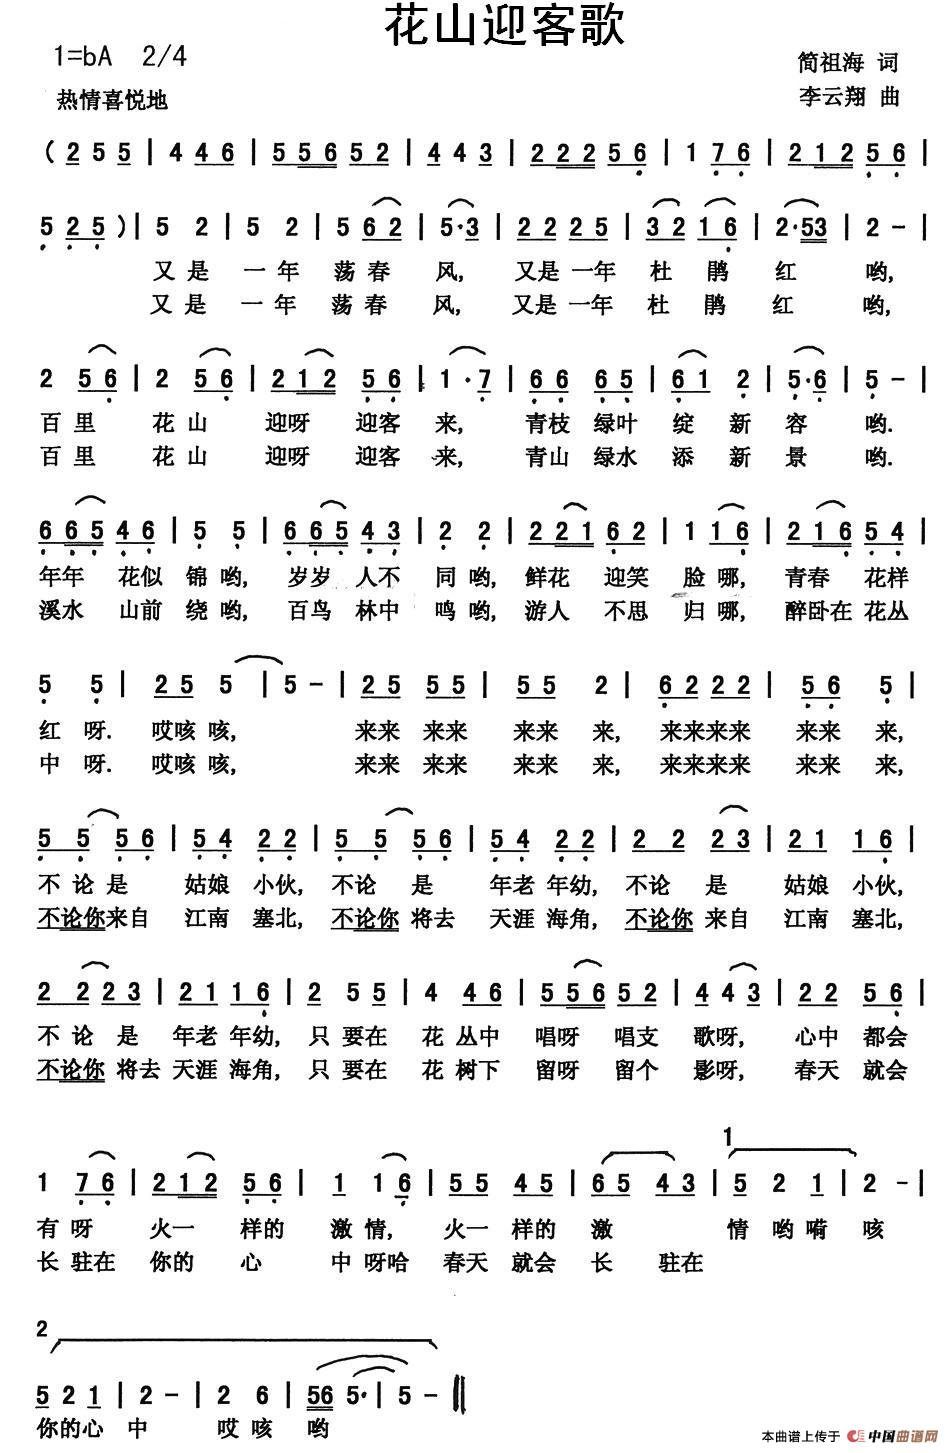 花山迎客歌
1=bA 2/4
简祖海 词
热情喜悦地
李云翔 曲
( 2 5 5 | 4 4 6 | 5 5 6 5 2 | 4 4 3 | 2 2 2 5 6 | 1 7 6 | 2 1 2 5 6 |
5 2 5 ) | 5 2 | 5 2 | 5 6 2 | 5 · 3 | 2 2 2 5 | 3 2 1 6 | 2 · 5 3 | 2 - |
又 是 一 年 荡 春 风, 又 是 一 年 杜 鹃 红 哟,
又 是 一 年 荡 春 风, 又 是 一 年 杜 鹃 红 哟,
2 5 6 | 2 5 6 | 2 1 2 5 6 | 1 · 7 | 6 6 6 5 | 6 1 2 | 5 · 6 | 5 - |
百 里 花 山 迎 呀 迎 客 来, 青 枝 绿 叶 绽 新 容 哟.
百 里 花 山 迎 呀 迎 客 来, 青 山 绿 水 添 新 景 哟.
6 6 5 4 6 | 5 5 | 6 6 5 4 3 | 2 2 | 2 2 1 6 2 | 1 1 6 | 2 1 6 5 4 |
年 年 花 似 锦 哟, 岁 岁 人 不 同 哟, 鲜 花 迎 笑 脸 哪, 青 春 花 样
溪 水 山 前 绕 哟, 百 鸟 林 中 鸣 哟, 游 人 不 思 归 哪, 醉 卧 在 花 丛
5 5 | 2 5 5 | 5 - | 2 5 5 5 | 5 5 2 | 6 2 2 2 | 5 6 5 |
红 呀. 哎 咳 咳, 来来 来来 来来 来, 来来来来 来来 来,
中 呀. 哎 咳 咳, 来来 来来 来来 来, 来来来来 来来 来,
5 5 5 6 | 5 4 2 2 | 5 5 5 6 | 5 4 2 2 | 2 2 2 3 | 2 1 1 6 |
不 论 是 姑娘 小伙, 不 论 是 年老 年幼, 不 论 是 姑娘 小伙,
不论你来自 江南 塞北, 不论你 将去 天涯 海角, 不论你 来自 江南 塞北,
2 2 2 3 | 2 1 1 6 | 2 5 5 | 4 4 6 | 5 5 6 5 2 | 4 4 3 | 2 2 5 6 |
不 论 是 年老 年幼, 只 要 在 花 丛中 唱呀 唱支 歌呀, 心中 都会
不论你 将去 天涯 海角, 只 要 在 花 树下 留呀 留个 影呀, 春天 就会
1
1 7 6 | 2 1 2 5 6 | 1 1 6 | 5 5 4 5 | 6 5 4 3 | 5 2 1 | 2 - |
有 呀 火一 样的 激 情, 火一 样的 激 情 哟 嗬 咳
长 驻在 你的 心 中 呀哈 春天 就会 长 驻在
2
5 2 1 | 2 - | 2 6 | 5 6 5 · | 5 - ‖
你的心 中 哎 咳 哟
本曲谱上传于 中国曲谱网